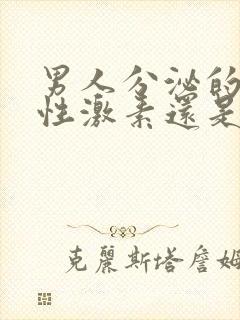 男人分泌的
性激素還是
克麗斯塔詹姆